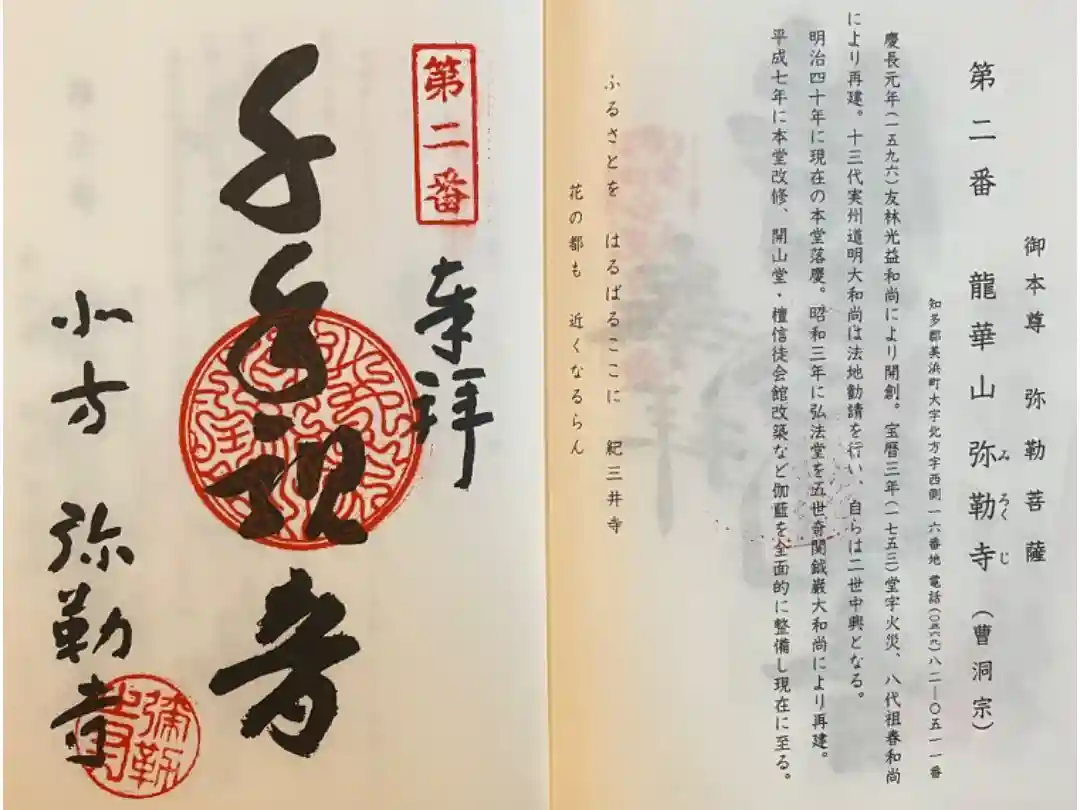 御本尊 弥勒菩薩
第二番 龍華山弥勒寺(曹洞宗)
みろくじ
知多郡美浜町大字北方字西側一六番地 電話(〇五六九)八二―〇五一一番
慶長元年(一五九六)友林光益和尚により開創。宝暦三年(一七五三)堂宇火災、八代祖春和尚
により再建。十三代実州道明大和尚は法地勧請を行い、自らは二世中興となる。
明治四十年に現在の本堂落慶。昭和三年に弘法堂を五世奇関鉞巌大和尚により再建。
平成七年に本堂改修、開山堂・檀信徒会館改築など伽藍を全面的に整備し現在に至る。
ふるさとを はるばるここに 紀三井寺
花の都も 近くなるらん
第二番
奉拝
千手観音
北方 弥勒寺
弥勒寺